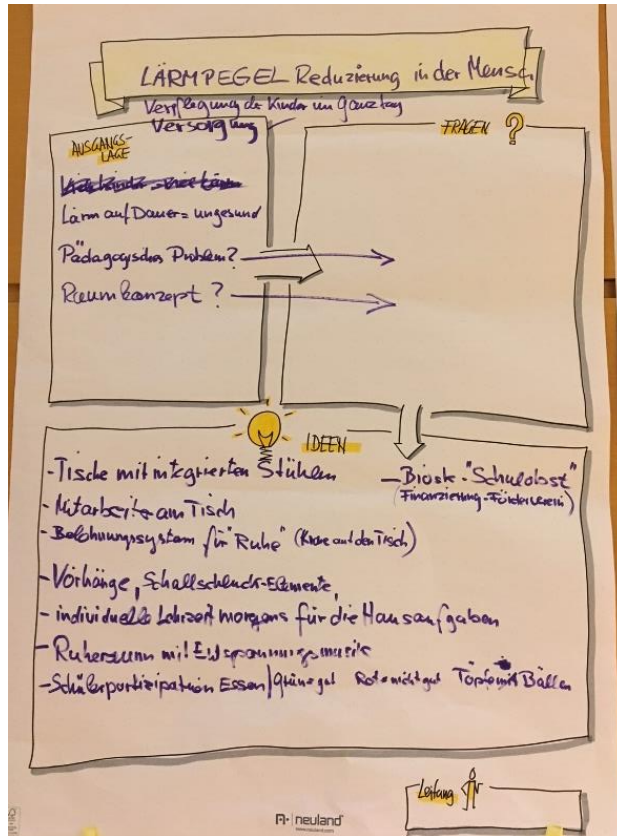 LÄRMPEGEL Reduzierung in der Mensa
Verpflegung der Kinder im Ganztag
Versorgung
AUSGANGS-
LAGE
Lärm auf Dauer = ungesund
Pädagogisches Problem?
Raumkonzept ?
FRAGEN ?
IDEEN
- Tische mit integrierten Stühlen
- Mitarbeiter am Tisch
- Belohnungssystem für "Ruhe" (Krone auf den Tisch)
- Vorhänge, Schallschluck-Elemente,
- individuelle Lehrzeit morgens für die Hausaufgaben
- Ruheraum mit Entspannungsmusik
- Schülerpartizipation Essen/grün=gut Rot=nicht gut Töpfe mit Bällen
- Biosk. "Schulobst"
(Finanzierung-Förderverein)
Leitung
neuland
www.neuland.com